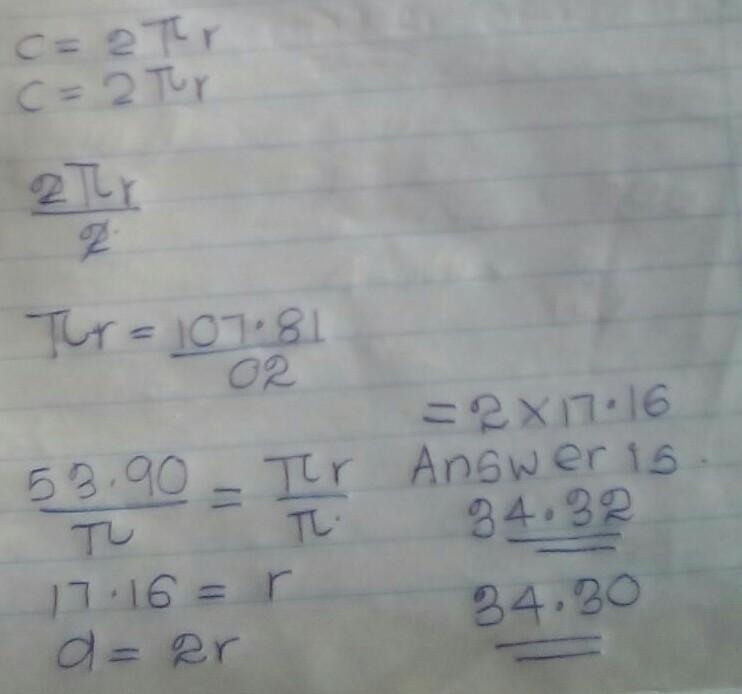 C = 2πr
C = 2πr
2πr
2
πr = 107.81
02
53.90 = πr
π π
17.16 = r
d = 2r
= 2 × 17.16
Answer is.
34.32
34.30